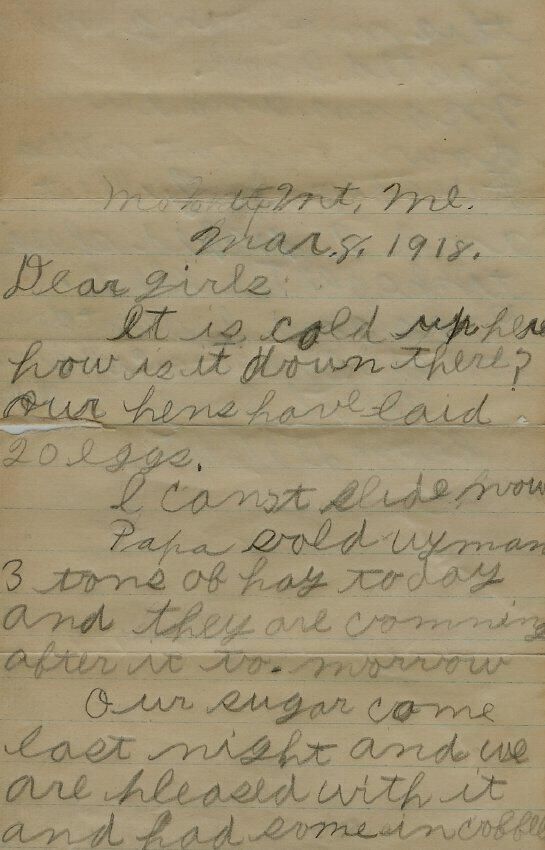 Mt, Me.
Mar. 8. 1918.
Dear girls:
It is cold up here
how is it down there?
Our hens have laid
20 eggs.
I can't slide now
Papa sold Wyman
3 tons of hay today
and they are comming
after it to-morrow
Our sugar come
last night and we
are pleased with it
and had some in coffee